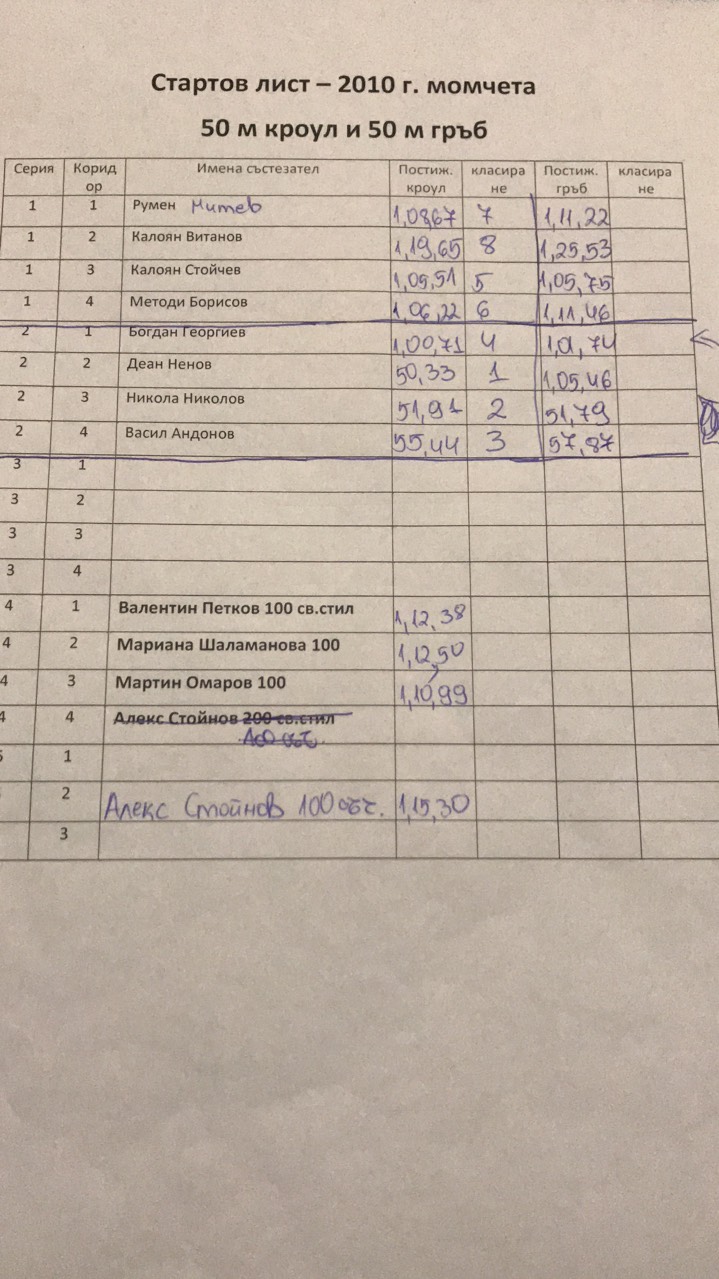 Стартов лист – 2010 г. момчета
50 м кроул и 50 м гръб
Серия Коридор Имена състезател Постиж. кроул класиране Постиж. гръб класиране
1 1 Румен Митев 1,08,67 7 1,11,22
1 2 Калоян Витанов 1,19,65 8 1,25,53
1 3 Калоян Стойчев 1,05,51 5 1,05,75
1 4 Методи Борисов 1,06,22 6 1,11,46
2 1 Богдан Георгиев 1,00,71 4 1,01,74
2 2 Деан Ненов 50,33 1 1,05,46
2 3 Никола Николов 51,91 2 51,79
2 4 Васил Андонов 55,44 3 57,87
3 1
3 2
3 3
3 4
4 1 Валентин Петков 100 св.стил 1,12,38
4 2 Мариана Шаламанова 100 1,12,50
4 3 Мартин Омаров 100 1,10,99
4 4 Алекс Стойнов 200 св.стил
1
2 Алекс Стойнов 100 съч. 1,15,30
3